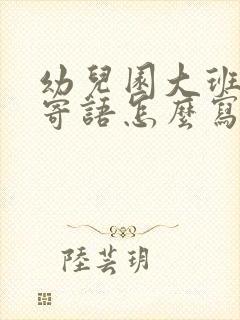 幼兒園大班
寄語怎麼寫
陸芸玥